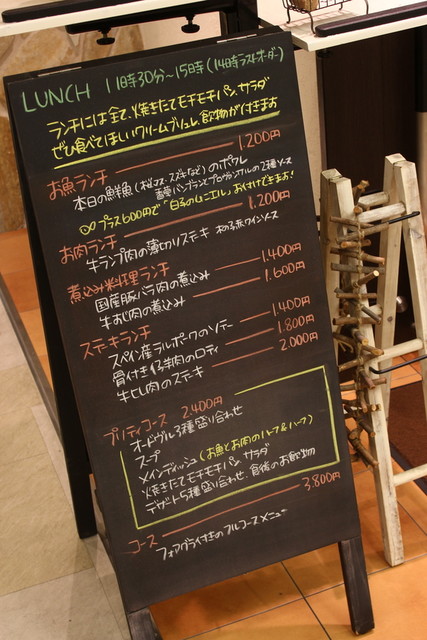 LUNCH 11時30分〜15時(14時ラストオーダー)
ランチには全て、焼きたてモチモチパン、サラダ
ぜひ食べてほしいクリームブリュレ、飲物が付きます
お魚ランチ 1.200円
本日の鮮魚(スズキなど)のポワレ
香草パン粉とプロヴァンサルの2種ソース
プラス600円で「白子のムニエル」お付けできます!
お肉ランチ 1.200円
牛ランプ肉の薄切りステキ 木の子赤ワインソース
煮込み料理ランチ
国産豚バラ肉の煮込み 1.400円
牛ほじ肉の煮込み 1.600円
ステーキランチ
スペイン産ラルポークのソテー 1.400円
骨付き仔羊肉のロティ 1.800円
牛ヒレ肉のステキ 2000円
プリティコース 2.400円
オードヴル3種盛り合わせ
スープ
メインディッシュ(お魚とお肉のハーフ&ハーフ)
焼きたてモチモチパン、サラダ
デザート5種盛り合わせ、食後のお飲物
コース 3.800円
フォアグラ付きのフルコースメニュー